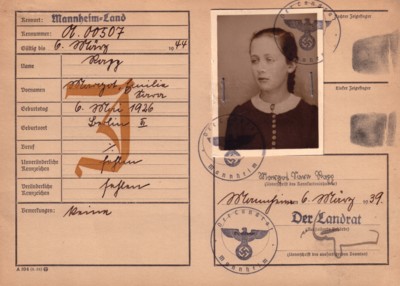 Kennort: Mannheim-Land
Kennummer: A. 00507
Gültig bis 6. März 1944
Name Rapp
Vornamen Margot, Emilie
Sara
Geburtstag 6. Mai 1926
Geburtsort Berlin
Beruf ./.
Unveränderliche Kennzeichen fehlen
Veränderliche Kennzeichen fehlen
Bemerkungen: Keine
J
Rechter Zeigefinger
Linker Zeigefinger
Der Landrat
Mannheim
Margot Sara Rapp
(Unterschrift des Kennkarteninhabers)
Mannheim, 6. März 1939.
Der Landrat
Der Landrat
Mannheim
(Unterschrift des ausfertigenden Beamten)
A 104